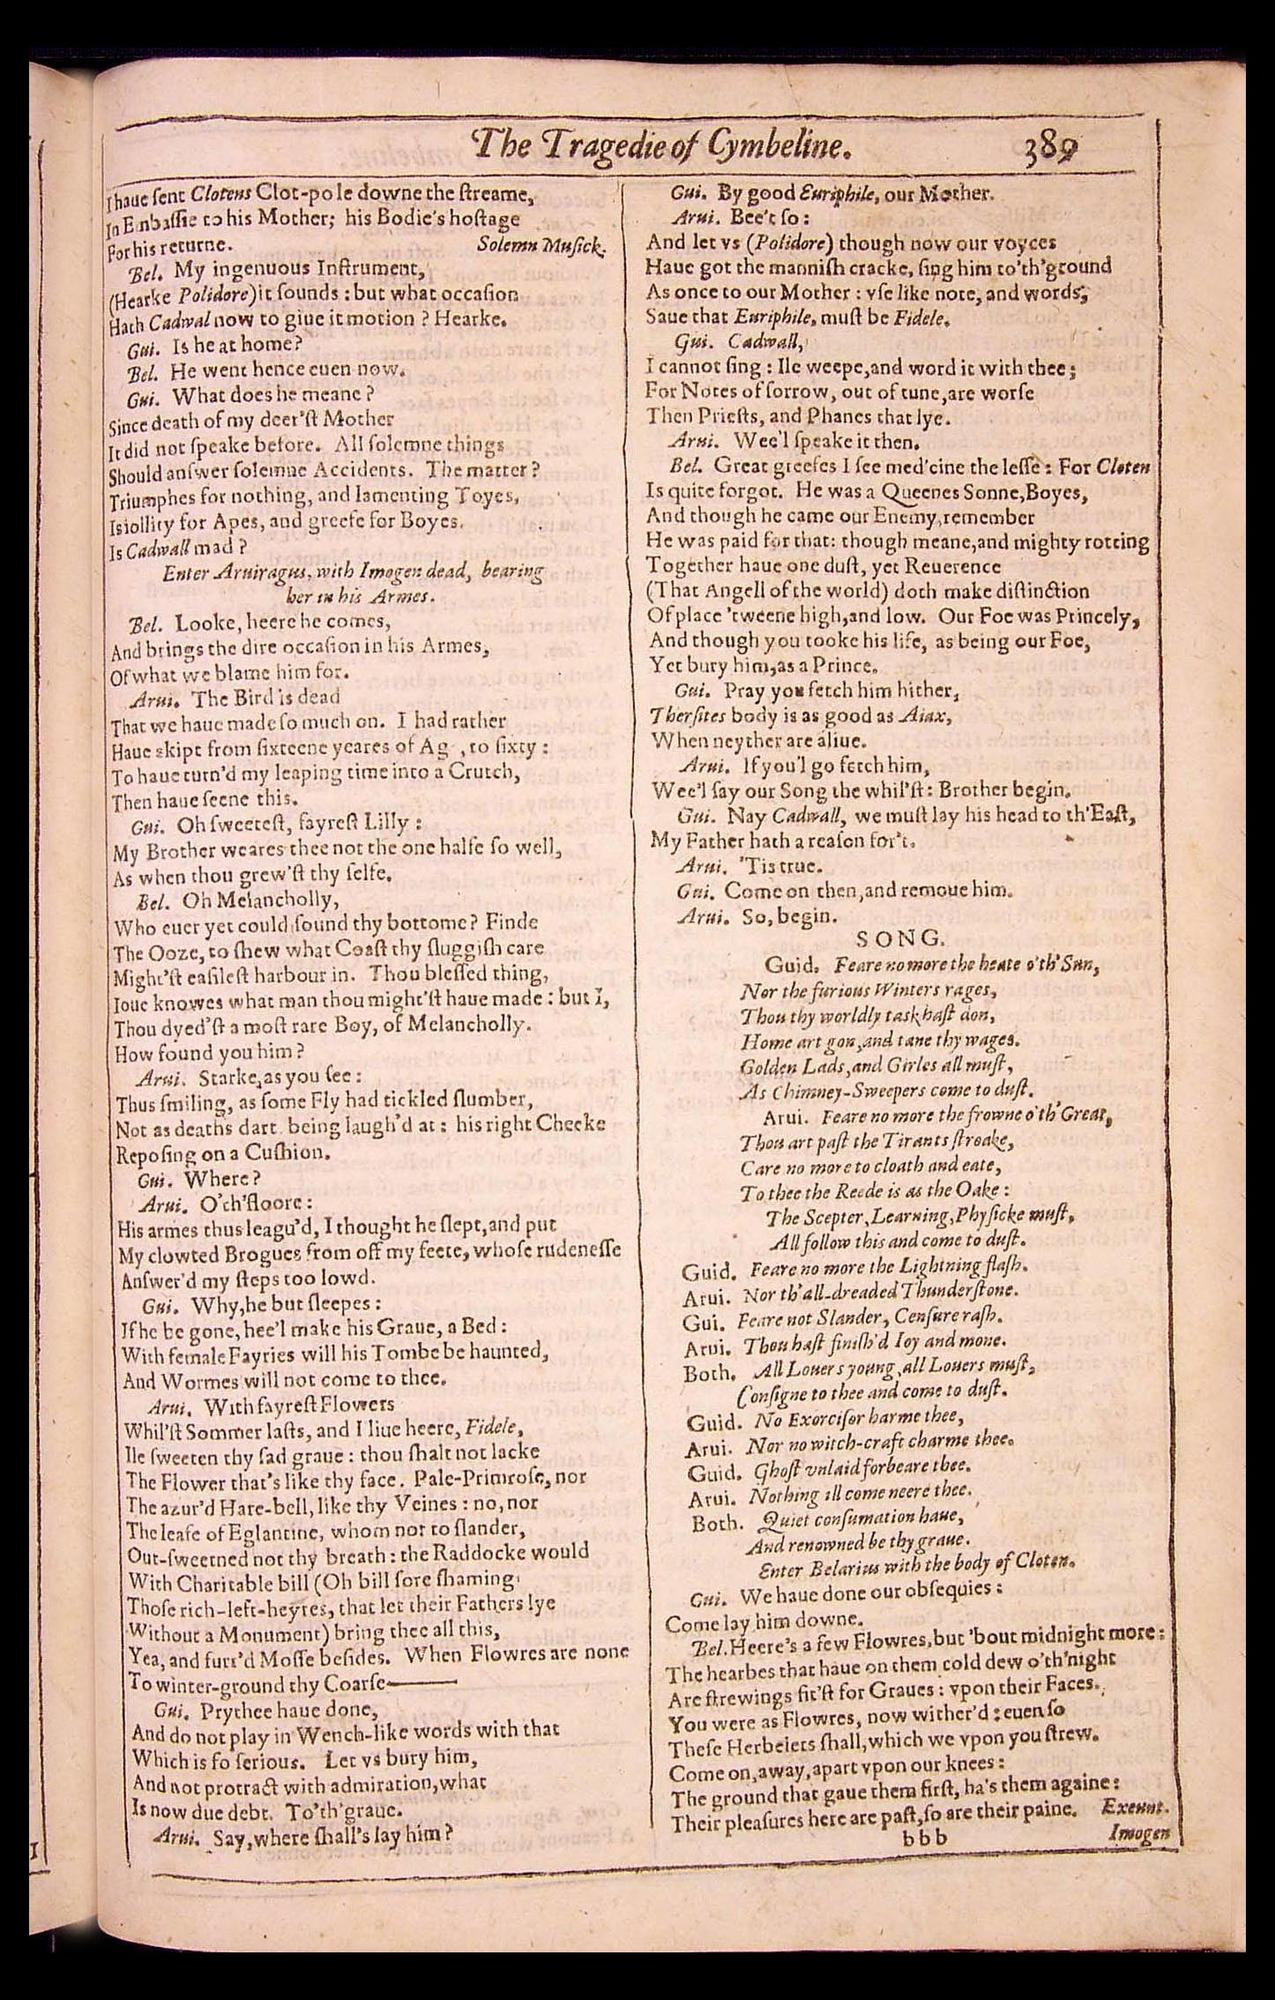 The Tragedie of Cymbeline.
389
I haue ſent Clotens Clot-pole downe the ſtreame,
In Embaſſie to his Mother; his Bodie's hoſtage
For his returne. Solemn Muſick.
Bel. My ingenuous Inſtrument,
(Hearke Polidore) it ſounds : but what occaſion
Hath Cadwal now to giue it motion ? Hearke.
Gui. Is he at home?
Bel. He went hence euen now.
Gui. What does he meane ?
Since death of my deer'ſt Mother
It did not ſpeake before. All ſolemne things
Should anſwer ſolemne Accidents. The matter ?
Triumphes for nothing, and lamenting Toyes,
Is iollity for Apes, and greefe for Boyes.
Is Cadwall mad ?
Enter Aruiragus, with Imogen dead, bearing
her in his Armes.
Bel. Looke, heere he comes,
And brings the dire occaſion in his Armes,
Of what we blame him for.
Arui. The Bird is dead
That we haue made ſo much on. I had rather
Haue skipt from ſixteene yeares of Ag , to ſixty :
To haue turn'd my leaping time into a Crutch,
Then haue ſeene this.
Gui. Oh ſweeteſt, fayreſt Lilly :
My Brother weares thee not the one halfe ſo well,
As when thou grew'ſt thy ſelfe.
Bel. Oh Melancholly,
Who euer yet could ſound thy bottome? Finde
The Ooze, to ſhew what Coaſt thy ſluggiſh care
Might'ſt eaſileſt harbour in. Thou bleſſed thing,
Ioue knowes what man thou might'ſt haue made : but I,
Thou dyed'ſt a moſt rare Boy, of Melancholly.
How found you him ?
Arui. Starke, as you ſee :
Thus ſmiling, as ſome Fly had tickled ſlumber,
Not as deaths dart being laugh'd at : his right Cheeke
Repoſing on a Cuſhion.
Gui. Where?
Arui. O'th'floore :
His armes thus leagu'd, I thought he ſlept, and put
My clowted Brogues from off my feete, whoſe rudeneſſe
Anſwer'd my ſteps too lowd.
Gui. Why, he but ſleepes :
If he be gone, hee'l make his Graue, a Bed :
With female Fayries will his Tombe be haunted,
And Wormes will not come to thee.
Arui. With fayreſt Flowers
Whil'ſt Sommer laſts, and I liue heere, Fidele,
Ile ſweeten thy ſad graue : thou ſhalt not lacke
The Flower that's like thy face. Pale-Primroſe, nor
The azur'd Hare-bell, like thy Veines : no, nor
The leafe of Eglantine, whom not to ſlander,
Out-ſweetned not thy breath : the Raddocke would
With Charitable bill (Oh bill ſore ſhaming
Thoſe rich-left-heyres, that let their Fathers lye
Without a Monument) bring thee all this,
Yea, and furr'd Moſſe beſides. When Flowres are none
To winter-ground thy Coarſe———
Gui. Prythee haue done,
And do not play in Wench-like words with that
Which is ſo ſerious. Let vs bury him,
And not protract with admiration, what
Is now due debt. To'th'graue.
Arui. Say, where ſhall's lay him ?
Gui. By good Euriphile, our Mother.
Arui. Bee't ſo :
And let vs (Polidore) though now our voyces
Haue got the manniſh cracke, ſing him to'th'ground
As once to our Mother : vſe like note, and words,
Saue that Euriphile, muſt be Fidele.
Gui. Cadwall,
I cannot ſing : Ile weepe, and word it with thee ;
For Notes of ſorrow, out of tune, are worſe
Then Prieſts, and Phanes that lye.
Arui. Wee'l ſpeake it then.
Bel. Great greefes I ſee med'cine the leſſe : For Cloten
Is quite forgot. He was a Queenes Sonne, Boyes,
And though he came our Enemy, remember
He was paid for that : though meane, and mighty rotting
Together haue one duſt, yet Reuerence
(That Angell of the world) doth make diſtinction
Of place 'tweene high, and low. Our Foe was Princely,
And though you tooke his life, as being our Foe,
Yet bury him, as a Prince.
Gui. Pray you fetch him hither,
Therſites body is as good as Aiax,
When neyther are aliue.
Arui. If you'l go fetch him,
Wee'l ſay our Song the whil'ſt : Brother begin.
Gui. Nay Cadwall, we muſt lay his head to th'Eaſt,
My Father hath a reaſon for't.
Arui. 'Tis true.
Gui. Come on then, and remoue him.
Arui. So, begin.
SONG.
Guid. Feare no more the heate o'th'Sun,
Nor the furious Winters rages,
Thou thy worldly task haſt don,
Home art gon, and tane thy wages.
Golden Lads, and Girles all muſt,
As Chimney-Sweepers come to duſt.
Arui. Feare no more the frowne o'th'Great,
Thou art paſt the Tirants ſtroake,
Care no more to cloath and eate,
To thee the Reede is as the Oake :
The Scepter, Learning, Phyſicke muſt,
All follow this and come to duſt.
Guid. Feare no more the Lightning flaſh.
Arui. Nor th'all-dreaded Thunderſtone.
Gui. Feare not Slander, Cenſure raſh.
Arui. Thou haſt finiſh'd Ioy and mone.
Both. All Louers young, all Louers muſt,
Conſigne to thee and come to duſt.
Guid. No Exorciſor harme thee,
Arui. Nor no witch-craft charme thee.
Guid. Ghoſt vnlaid forbeare thee.
Arui. Nothing ill come neere thee.
Both. Quiet conſumation haue,
And renowned be thy graue.
Enter Belarius with the body of Cloten.
Gui. We haue done our obſequies :
Come lay him downe.
Bel. Heere's a few Flowres, but 'bout midnight more :
The hearbes that haue on them cold dew o'th'night
Are ſtrewings fit'ſt for Graues : vpon their Faces.
You were as Flowres, now wither'd : euen ſo
Theſe Herbelets ſhall, which we vpon you ſtrew.
Come on, away, apart vpon our knees :
The ground that gaue them firſt, ha's them againe :
Their pleaſures here are paſt, ſo are their paine. Exeunt.
bbb Imogen